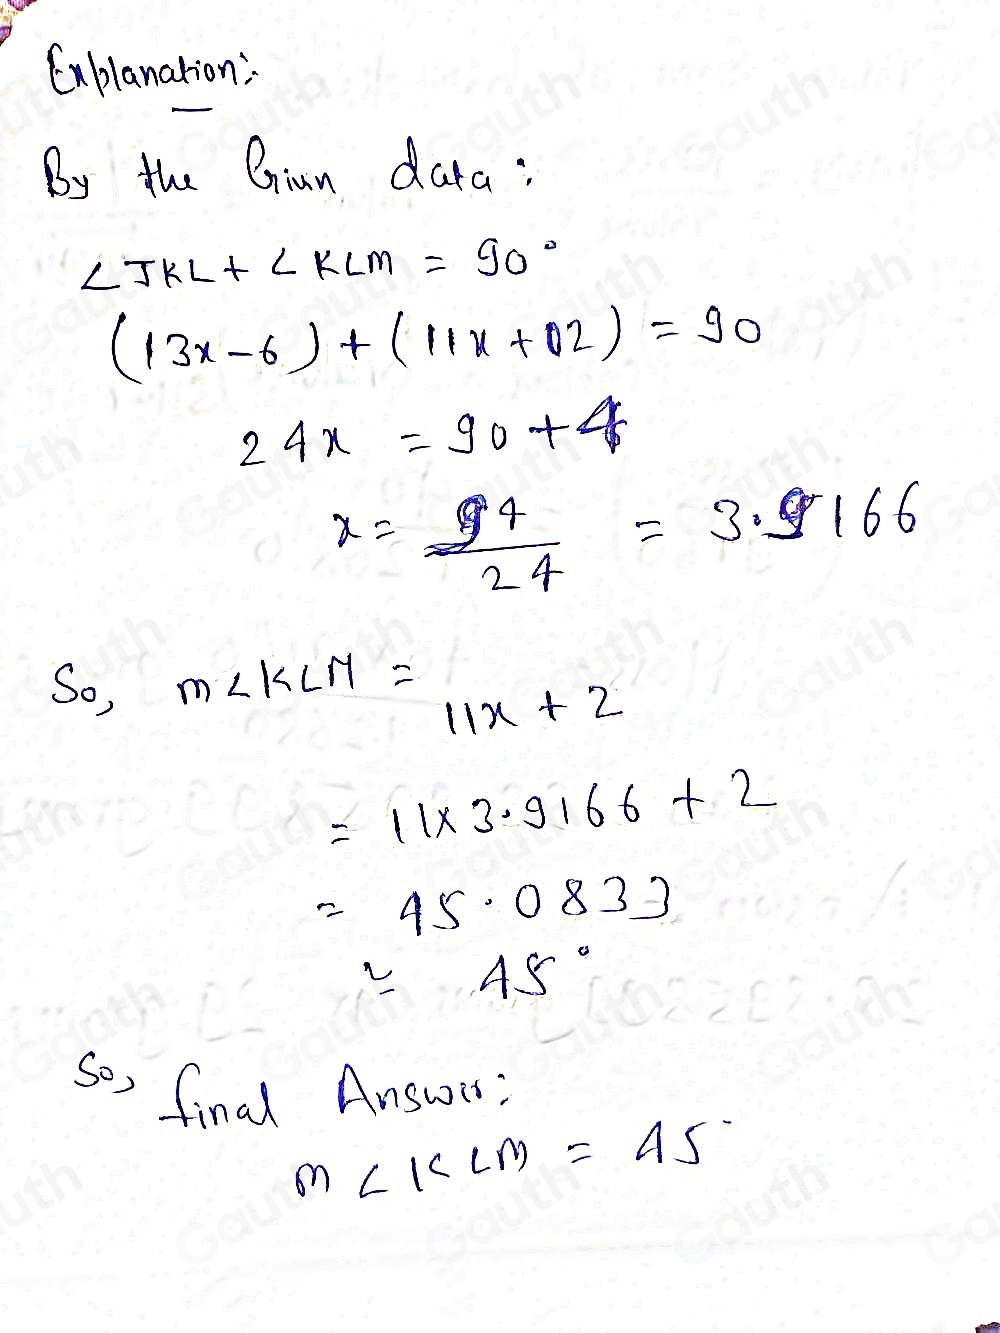 Explanation:-
By the Givn data:
∠JKL + ∠KLM = 90°
(13x-6)+(11x+02) = 90
24x = 90+4
x = 94/24 = 3.9166
So, m∠KLM =
11x + 2
= 11×3.9166 + 2
= 45.0833
≃ 45°
So, final Answer:
m∠KLM = 45°
Gauth